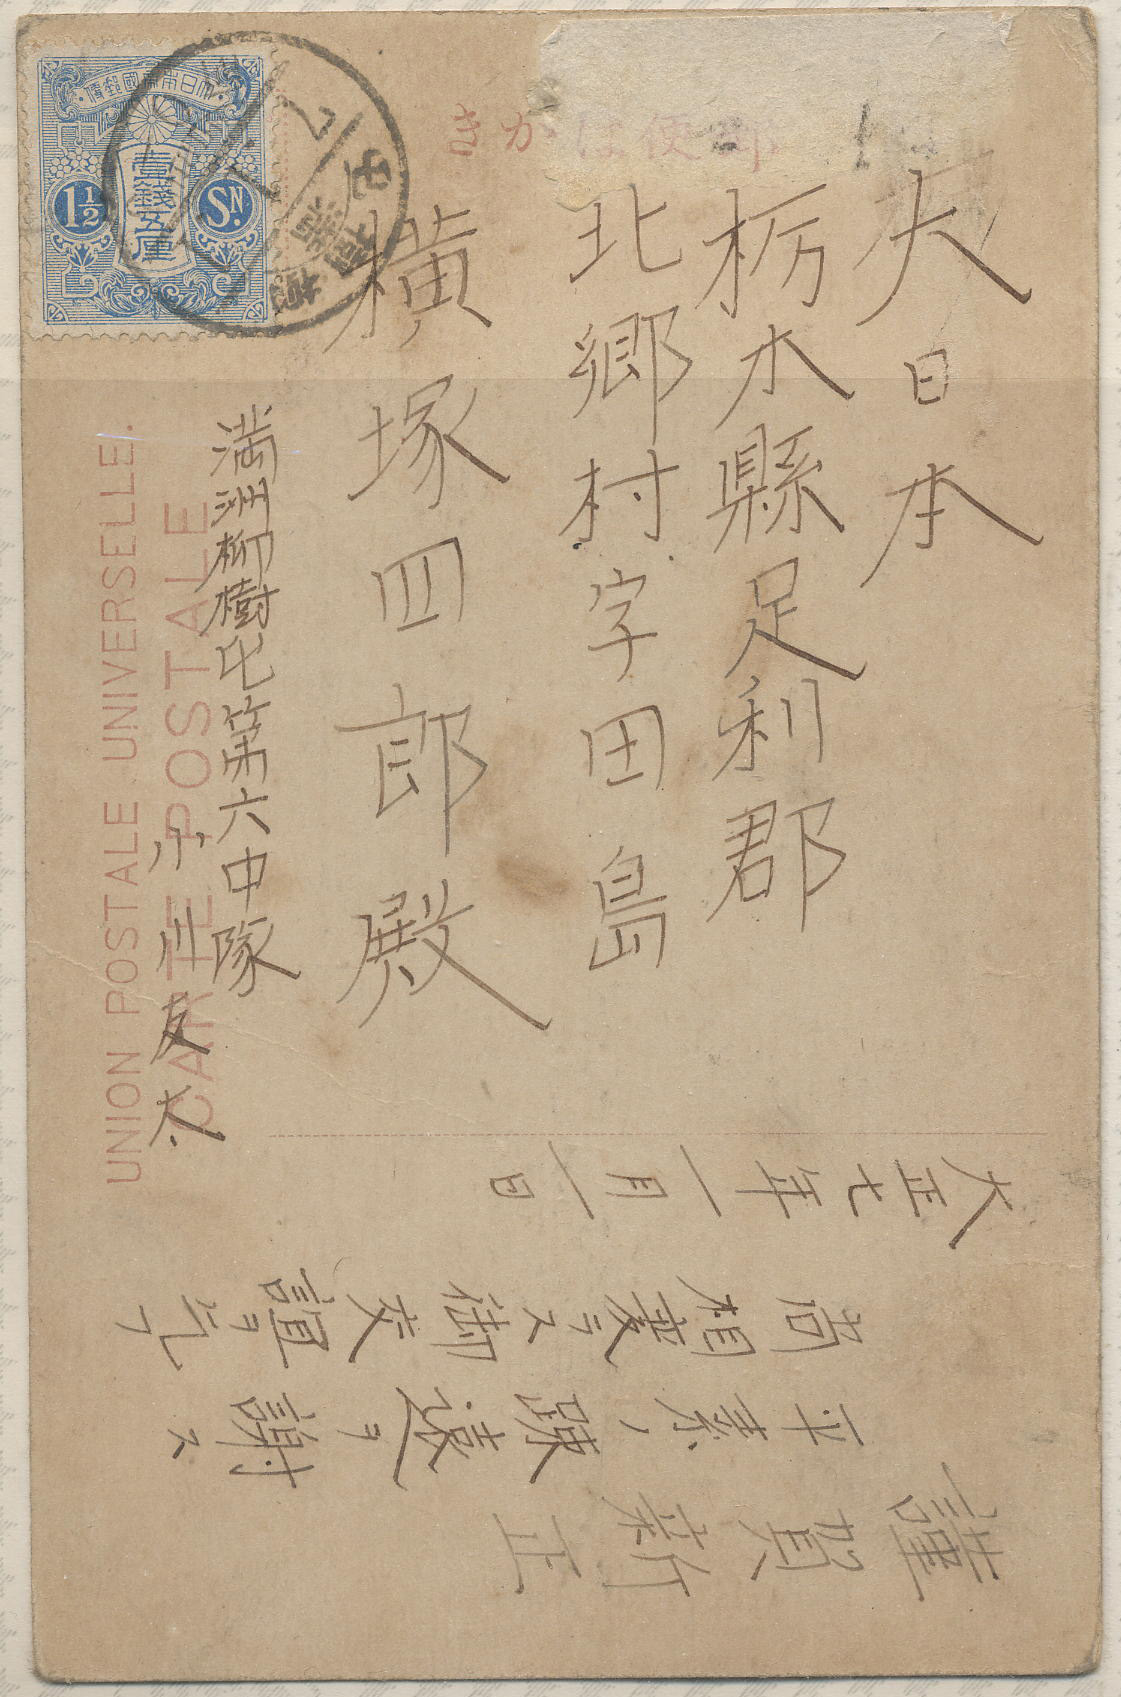 大日本
栃木縣足利郡
北郷村字田島
横塚四郎殿
満洲柳樹屯第六中隊
三友
きか
UNION POSTALE UNIVERSELLE.
CARTE POSTALE
大日本帝國郵便
壹錢五厘
1½
SN.
謹賀新正
平素ノ疎遠ヲ謝ス
尚相変ラス御友誼ヲ乞フ
大正七年一月一日